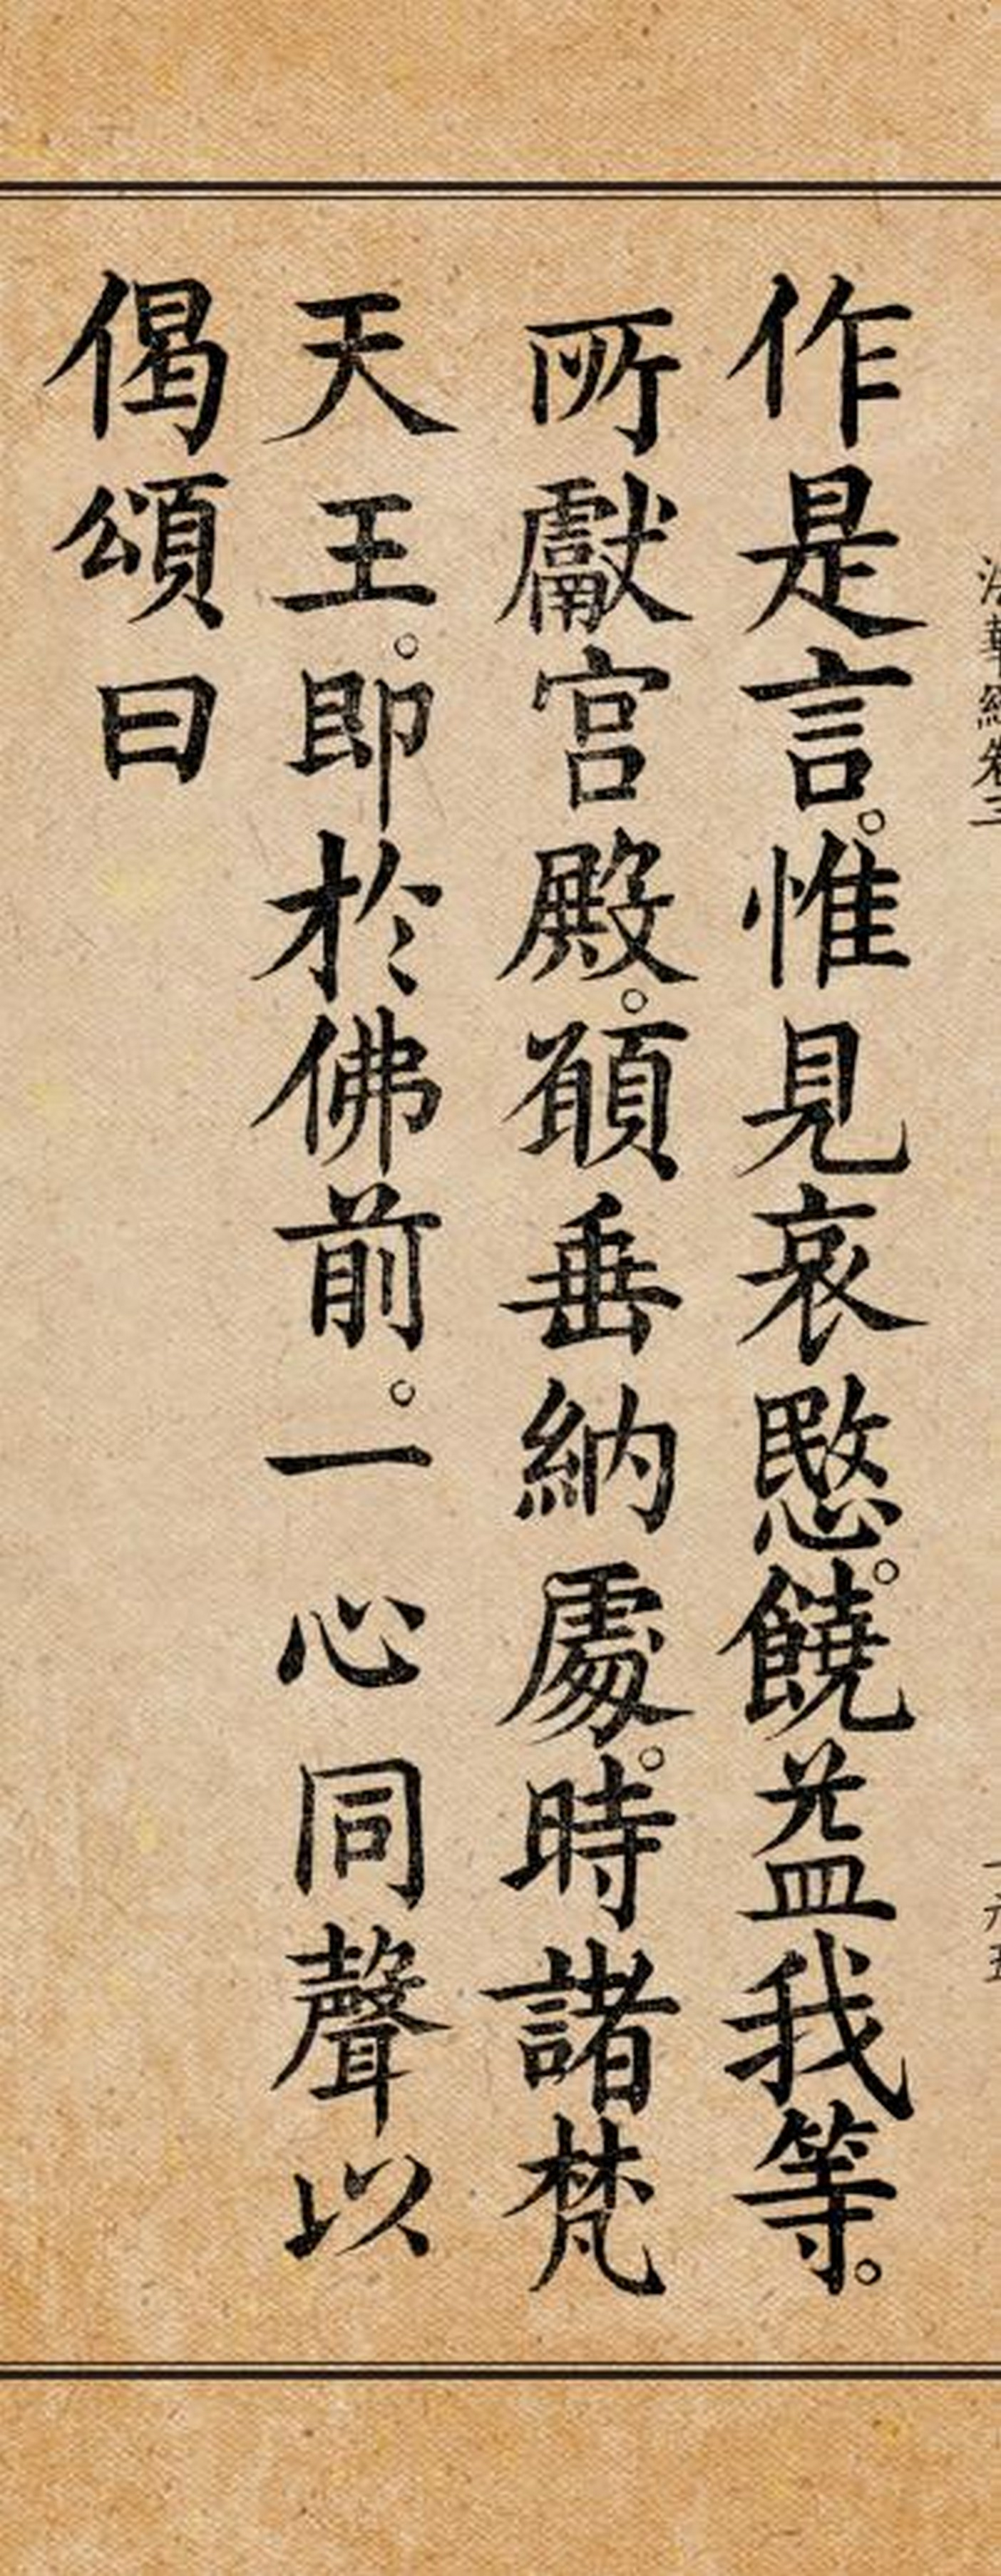 法華經卷三
作是言。惟見哀愍。饒益我等。
所獻宮殿。願垂納處。時諸梵
天王。即於佛前。一心同聲以
偈頌曰